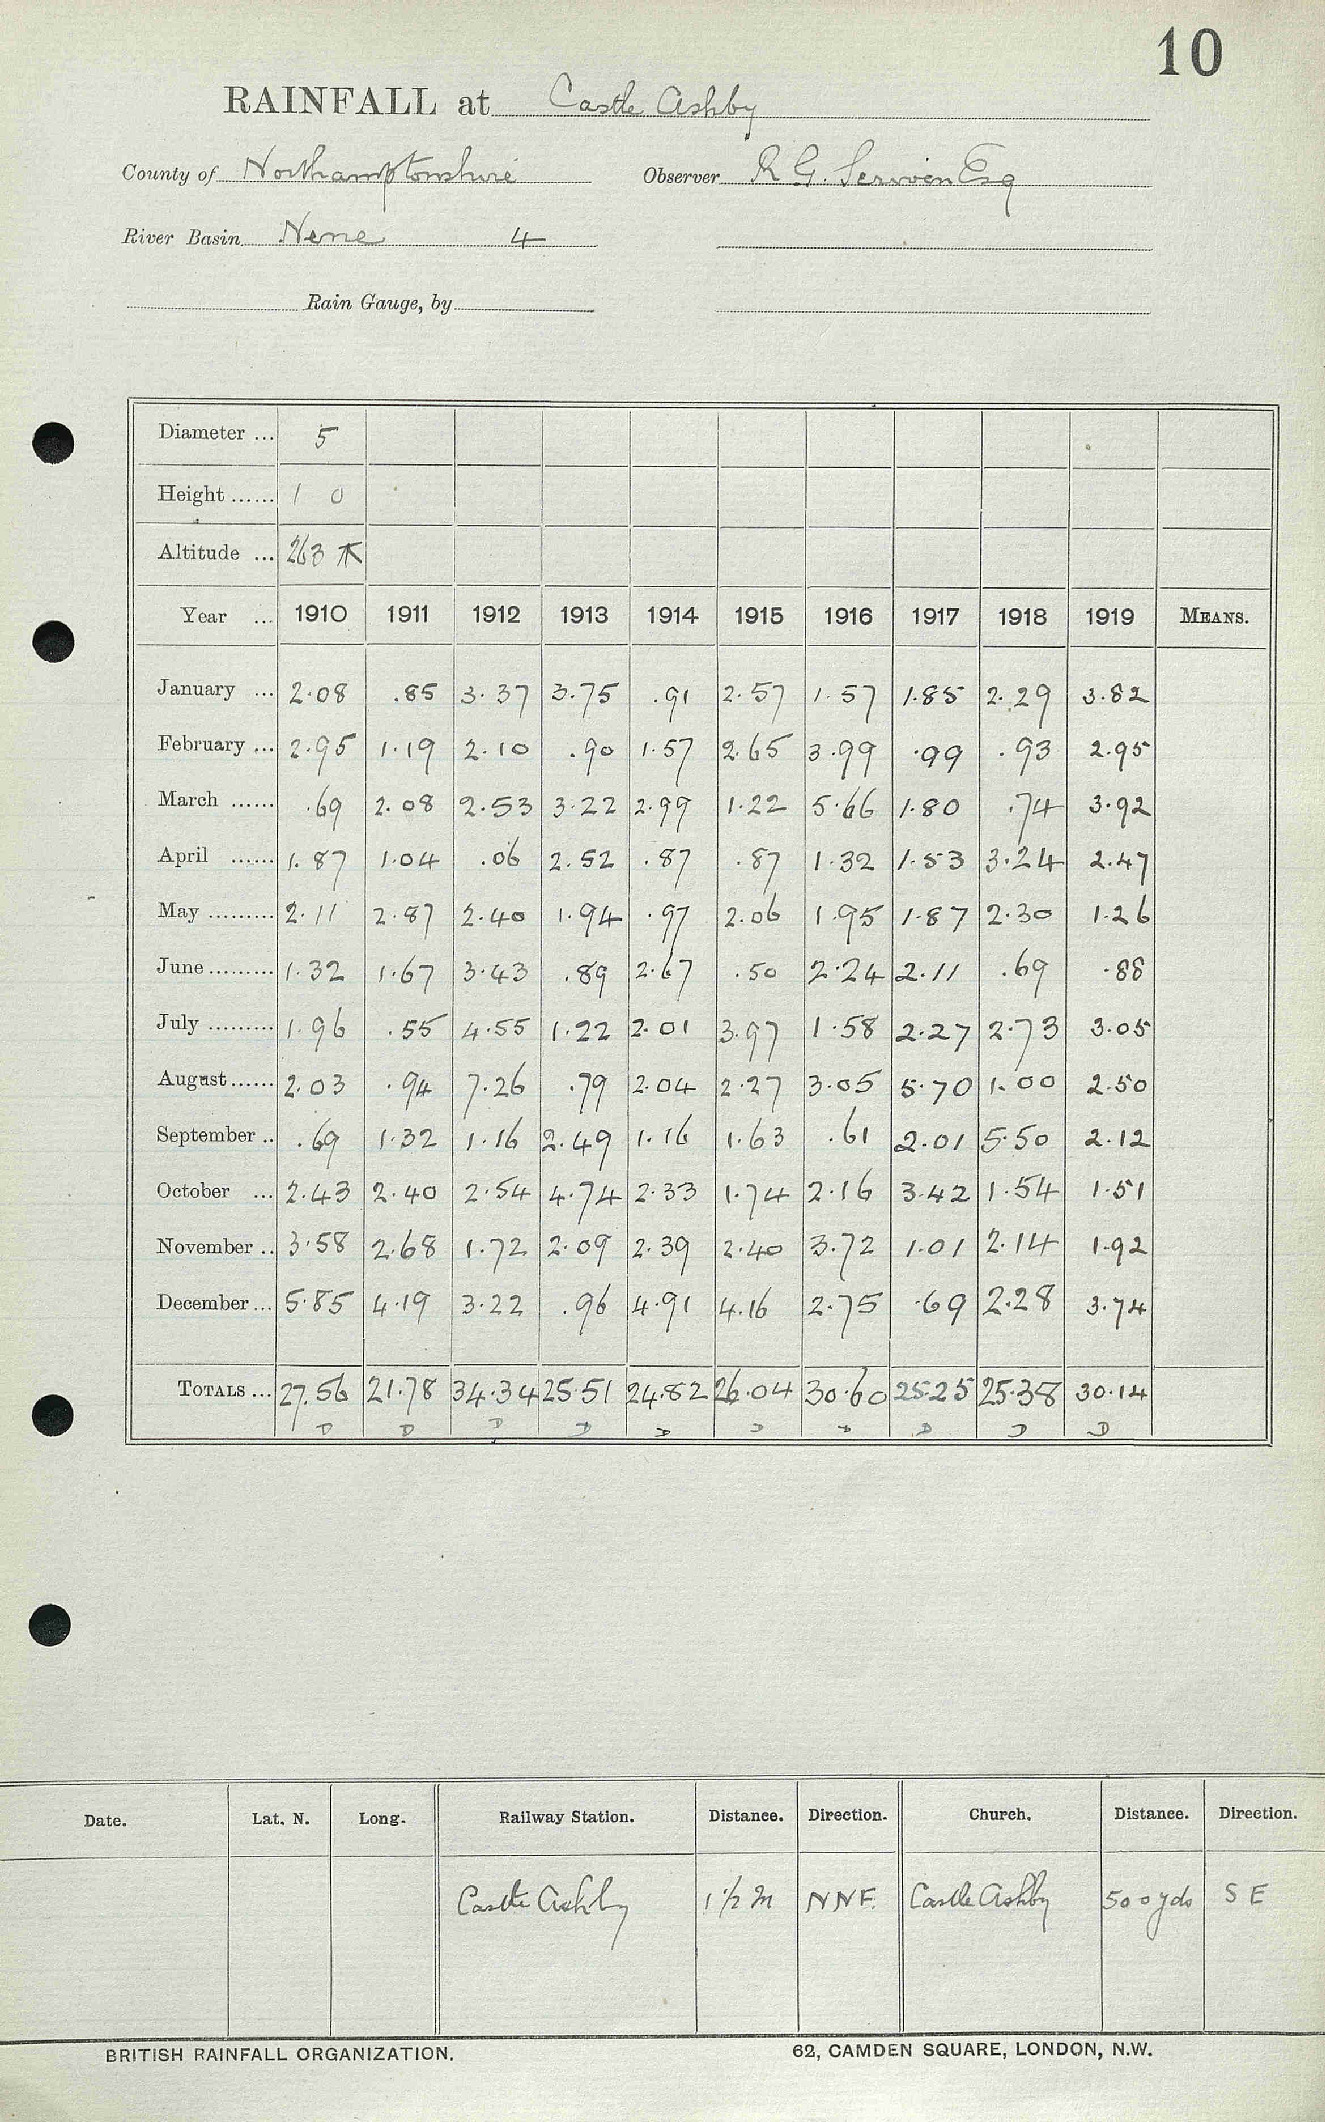 10
RAINFALL at Castle Ashby
County of Northamptonshire Observer R G. Scriven Esq
River Basin Nene 4
Rain Gauge, by
Diameter ... 5
Height ...... 1 0
Altitude ... 263
Year ... 1910 1911 1912 1913 1914 1915 1916 1917 1918 1919 MEANS.
January ... 2.08 .85 3.37 3.75 .91 2.57 1.57 1.85 2.29 3.82
February ... 2.95 1.19 2.10 .90 1.57 2.65 3.99 .99 .93 2.95
March ...... .69 2.08 2.53 3.22 2.99 1.22 5.66 1.80 .74 3.92
April ...... 1.87 1.04 .06 2.52 .87 .87 1.32 1.53 3.24 2.47
May ......... 2.11 2.87 2.40 1.94 .97 2.06 1.95 1.87 2.30 1.26
June ......... 1.32 1.67 3.43 .89 2.67 .50 2.24 2.11 .69 .88
July ......... 1.96 .55 4.55 1.22 2.01 3.97 1.58 2.27 2.73 3.05
August ...... 2.03 .94 7.26 .79 2.04 2.27 3.05 5.70 1.00 2.50
September .. .69 1.32 1.16 2.49 1.16 1.63 .61 2.01 5.50 2.12
October ... 2.43 2.40 2.54 4.74 2.33 1.74 2.16 3.42 1.54 1.51
November .. 3.58 2.68 1.72 2.09 2.39 2.40 3.72 1.01 2.14 1.92
December ... 5.85 4.19 3.22 .96 4.91 4.16 2.75 .69 2.28 3.74
TOTALS ... 27.56 21.78 34.34 25.51 24.82 26.04 30.60 25.25 25.38 30.14
D D D D D D D D D D
Date. Lat. N. Long. Railway Station. Distance. Direction. Church. Distance. Direction.
Castle Ashby 1 1/2 m NNE. Castle Ashby 500 yds S E
BRITISH RAINFALL ORGANIZATION. 62, CAMDEN SQUARE, LONDON, N.W.